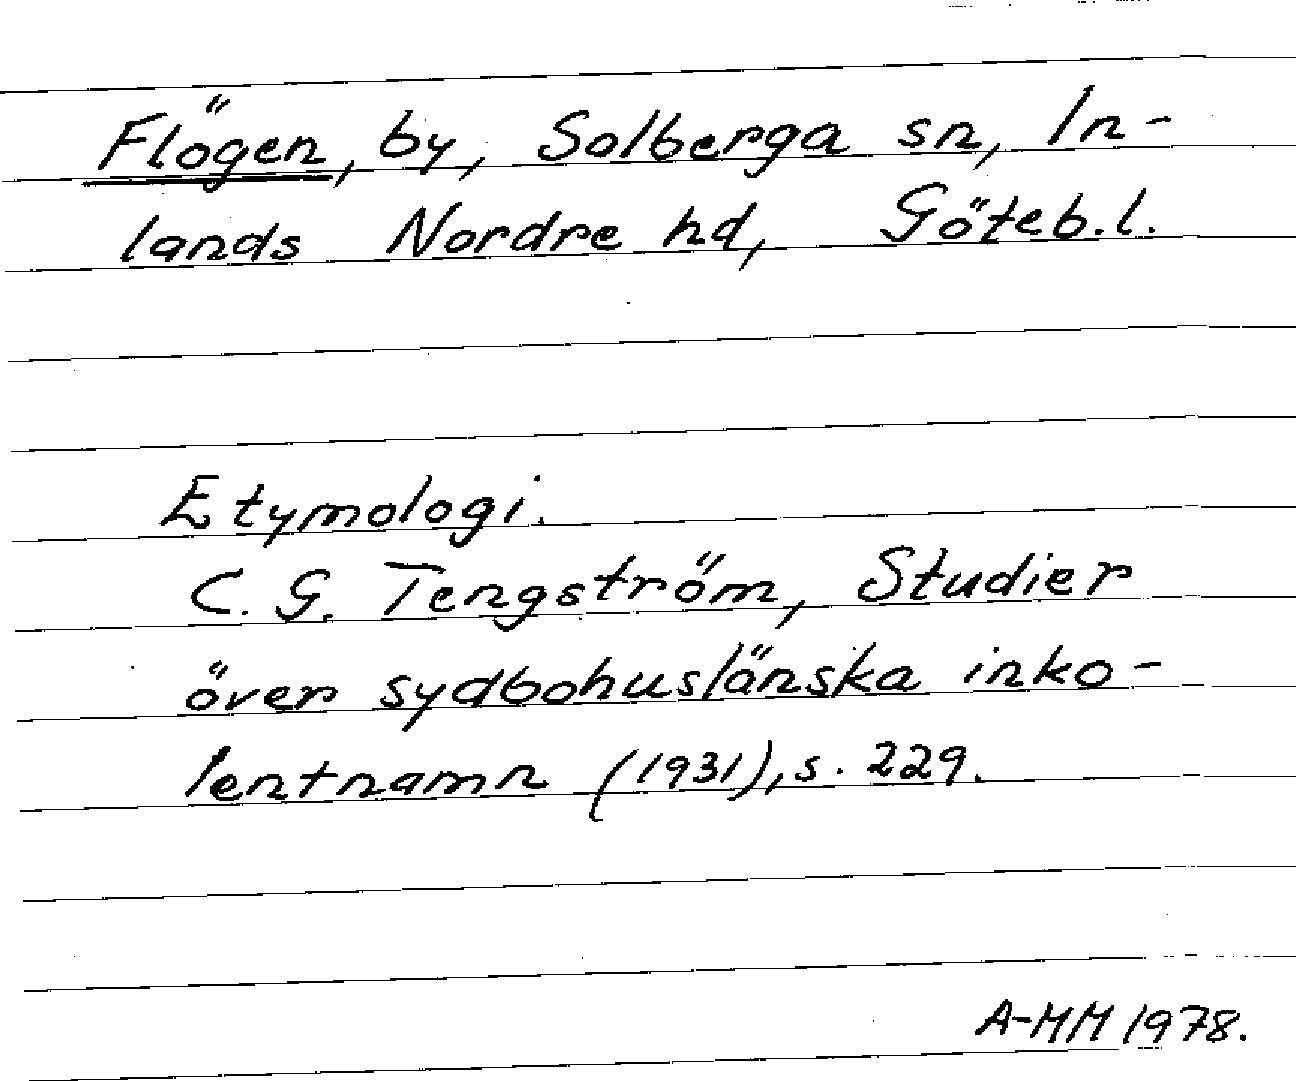 Flögen, by, Solberga sn, In-
lands Nordre hd, Göteb.l.
Etymologi.
C. G. Tengström, Studier
över sydbohuslänska inko-
lentnamn (1931), s. 229.
A-MM 1978.